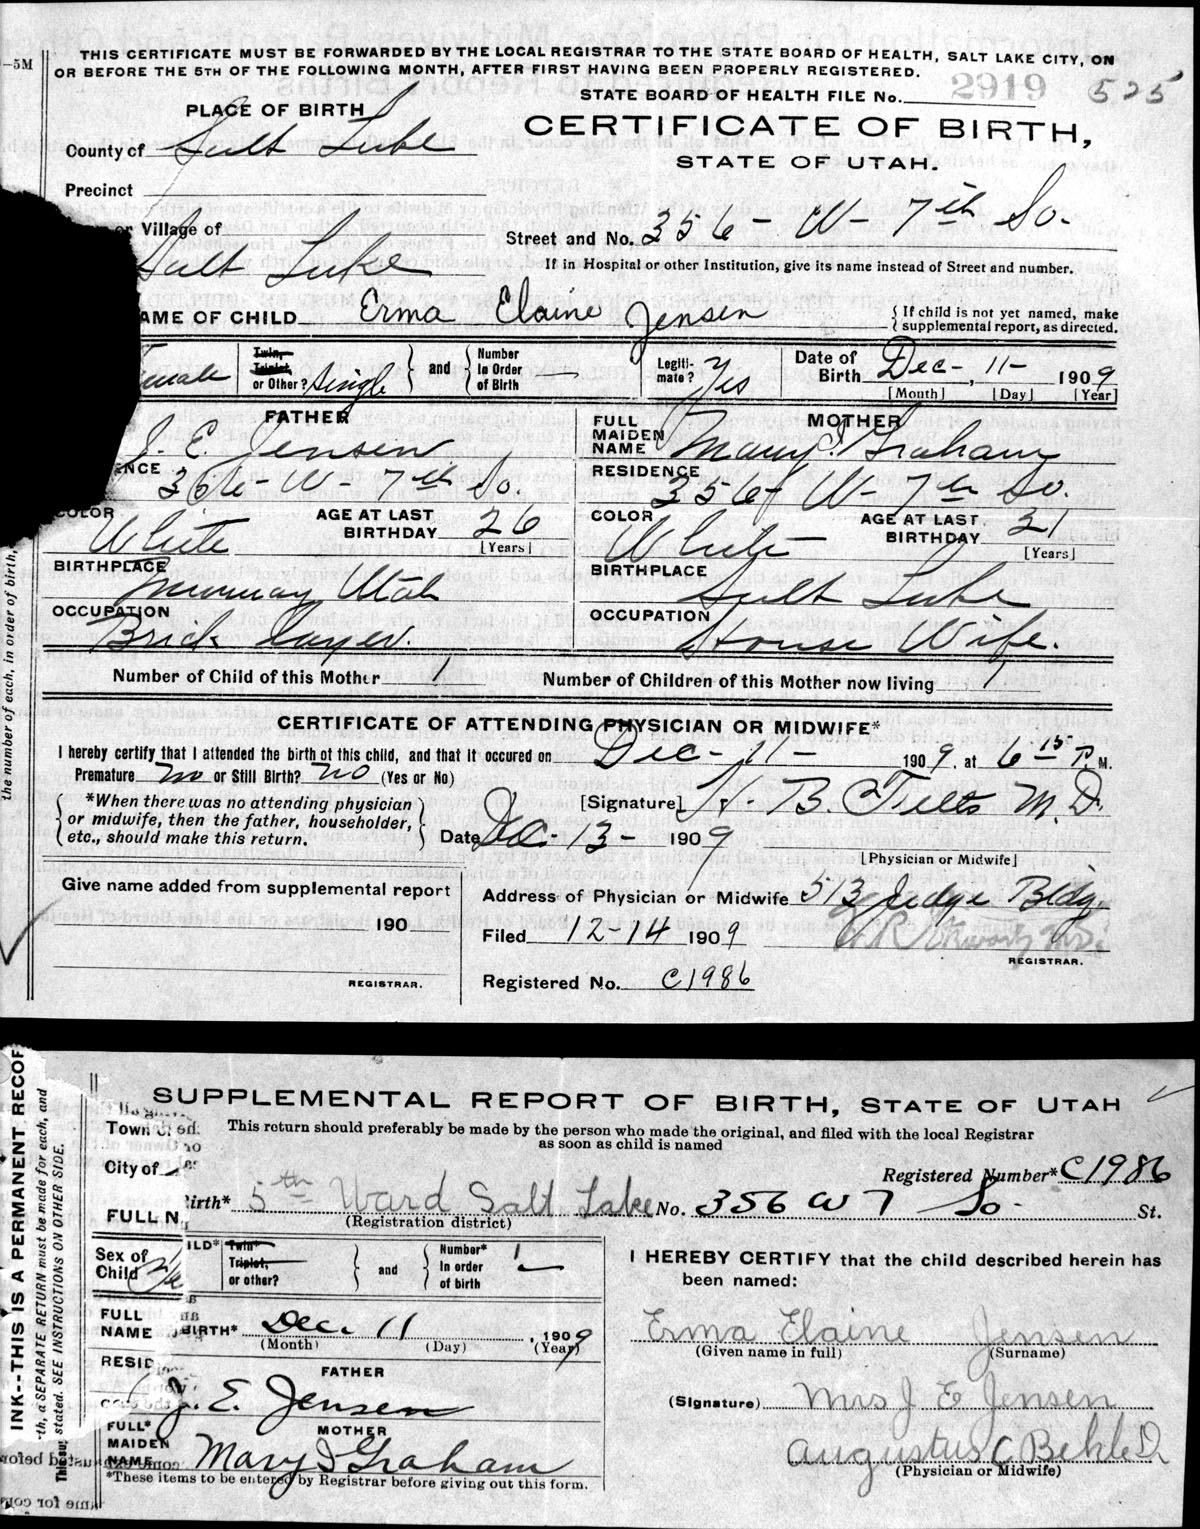 THIS CERTIFICATE MUST BE FORWARDED BY THE LOCAL REGISTRAR TO THE STATE BOARD OF HEALTH, SALT LAKE CITY, ON
OR BEFORE THE 5TH OF THE FOLLOWING MONTH, AFTER FIRST HAVING BEEN PROPERLY REGISTERED.
—5M
STATE BOARD OF HEALTH FILE No. 2919 525
PLACE OF BIRTH
CERTIFICATE OF BIRTH,
STATE OF UTAH.
County of Salt Lake
Precinct
or Village of
Salt Lake
Street and No. 356 - W - 7th So.
If in Hospital or other Institution, give its name instead of Street and number.
AME OF CHILD Erma Elaine Jensen
If child is not yet named, make
supplemental report, as directed.
emale
Twin,
Triplet,
or Other? Single
and
Number
In Order
of Birth —
Legiti-
mate? Yes
Date of
Birth Dec- 11- 1909
[Month] [Day] [Year]
FATHER
J. E. Jensen
ENCE
356 - W - 7th So.
COLOR White
AGE AT LAST
BIRTHDAY 26
[Years]
BIRTHPLACE
Murray Utah
OCCUPATION
Brick Layer.
MOTHER
FULL
MAIDEN
NAME Mary S. Graham
RESIDENCE
356 W - 7th So.
COLOR White
AGE AT LAST
BIRTHDAY 21
[Years]
BIRTHPLACE
Salt Lake
OCCUPATION
House Wife.
Number of Child of this Mother 1
Number of Children of this Mother now living 1
CERTIFICATE OF ATTENDING PHYSICIAN OR MIDWIFE*
I hereby certify that I attended the birth of this child, and that it occured on Dec- 11- 1909, at 6 15 P. M.
Premature No or Still Birth? No (Yes or No)
*When there was no attending physician
or midwife, then the father, householder,
etc., should make this return.
[Signature] B. M.D.
Date Dec- 13- 1909
[Physician or Midwife]
Give name added from supplemental report
190
REGISTRAR.
Address of Physician or Midwife 513 Judge Bldg.
Filed 12-14 1909
REGISTRAR.
Registered No. C1986
the number of each, in order of birth,
SUPPLEMENTAL REPORT OF BIRTH, STATE OF UTAH
This return should preferably be made by the person who made the original, and filed with the local Registrar
as soon as child is named
Town
City of
Registered Number* C1986
Birth* 5th Ward Salt Lake No. 356 W 7 So. St.
(Registration district)
FULL N
Sex of
Child
ILD*
Twin*
Triplet,
or other?
and
Number*
In order
of birth 1
FULL
NAME
BIRTH* Dec. 11, 1909
(Month) (Day) (Year)
RESID
FATHER
J. E. Jensen
FULL*
MAIDEN
NAME
MOTHER
Mary S Graham
*These items to be entered by Registrar before giving out this form.
I HEREBY CERTIFY that the child described herein has
been named:
Erma Elaine Jensen
(Given name in full) (Surname)
(Signature) Mrs J E Jensen
Augustus C Behle D
(Physician or Midwife)
INK--THIS IS A PERMANENT RECOR
th, a SEPARATE RETURN must be made for each, and
stated. SEE INSTRUCTIONS ON OTHER SIDE.